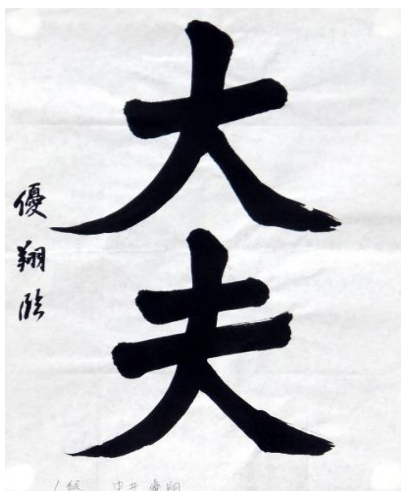 大夫
優翔臨
1級 中井優翔